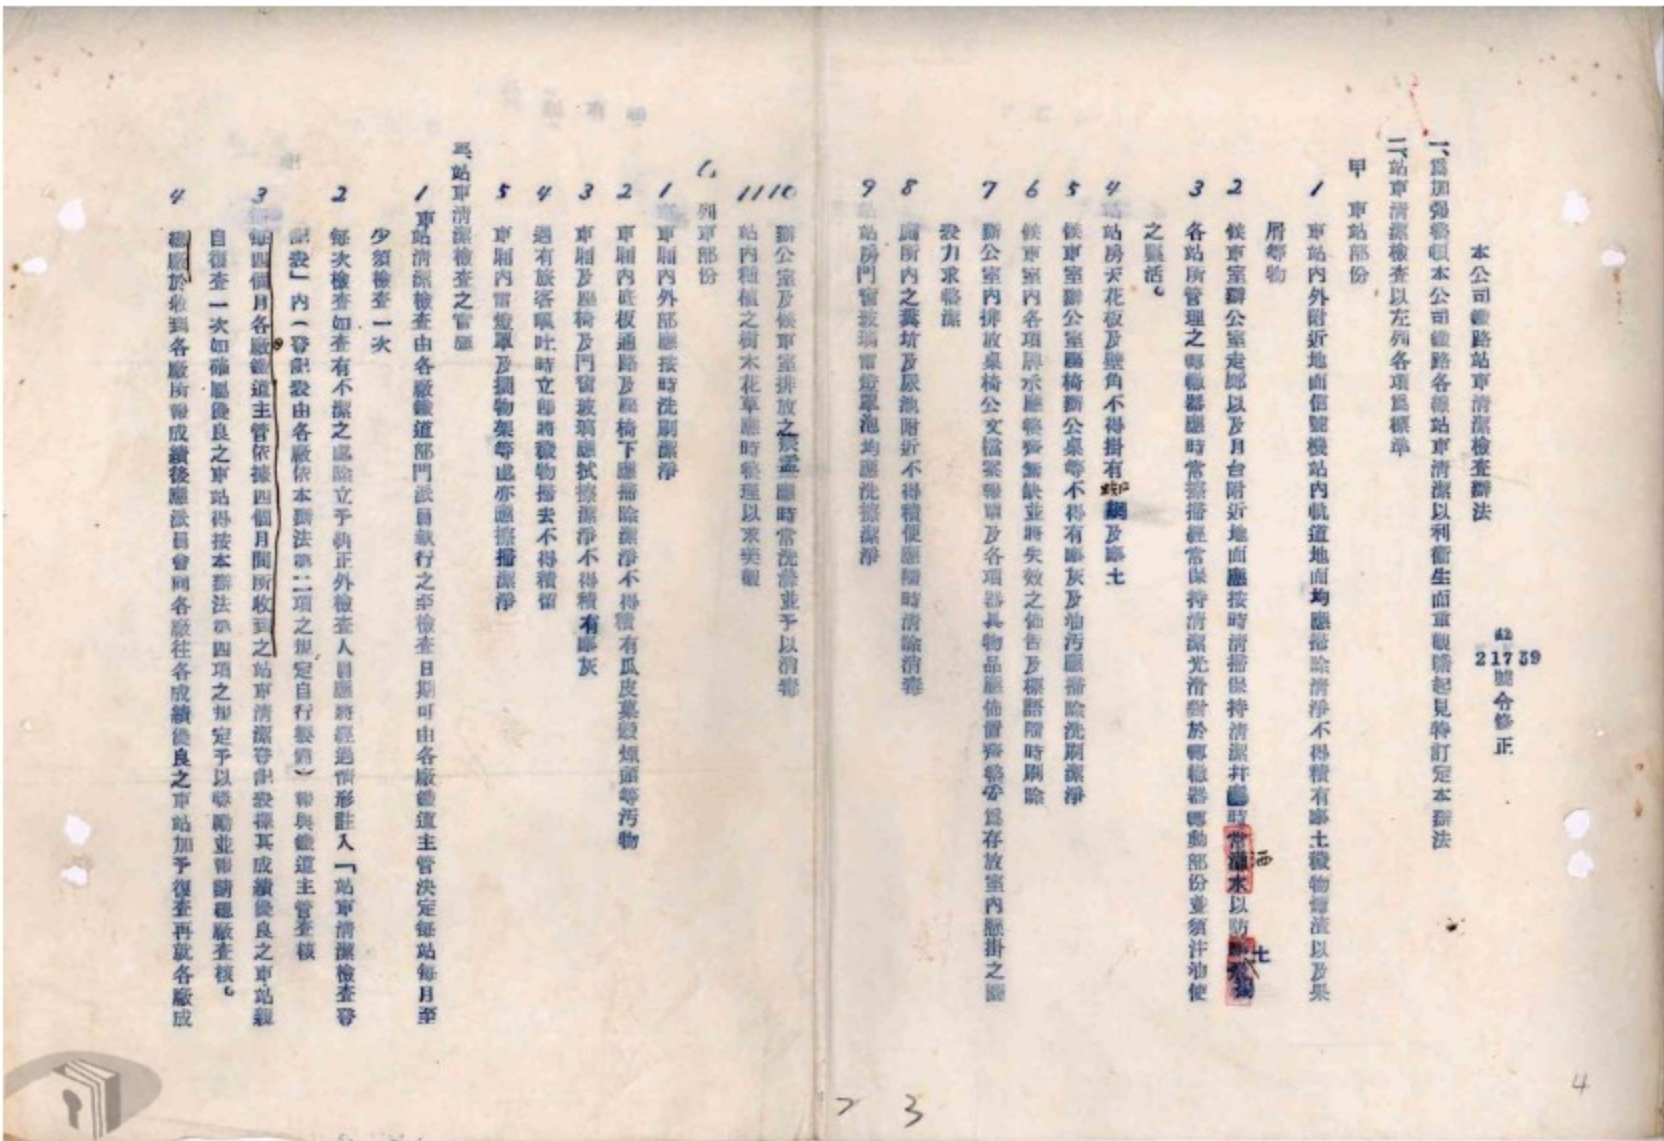 本公司鐵路站車清潔檢查辦法
21739號令修正
一、為加強整頓本公司鐵路各線站車清潔以利衛生而重觀瞻起見特訂定本辦法
二、站車清潔檢查以左列各項為標準
甲 車站部份
1 車站內外附近地面信號機站內軌道地面均應掃除清淨不得積有塵土穢物煤渣以及果
屑等物
2 候車室辦公室走廊以及月台附近地面應按時清掃保持清潔并應時常洒水以防
3 各站所管理之轉轍器應時常擦掃經常保持清潔光滑對於轉轍器轉動部份並須注油使
之靈活。
4 站房天花板及壁角不得掛有蜘網及塵土
5 候車室辦公室牆椅辦公桌等不得有塵灰及油污應掃除洗刷潔淨
6 候車室內各項牌示應整齊無缺並將失效之佈告及標語隨時刷除
7 辦公室內排放桌椅公文檔案報單及各項器具物品應佈置齊整妥為存放室內懸掛之圖
表力求整潔
8 廁所內之糞坑及尿池附近不得積便應隨時清除消毒
9 站房門窗玻璃電燈罩池均應洗擦潔淨
10 辦公室及候車室排放之痰盂應時常洗滌並予以消毒
11 站內種植之樹木花草應時整理以求美觀
乙、列車部份
1 車廂內外部應按時洗刷潔淨
2 車廂內底板通路及座椅下應掃除潔淨不得積有瓜皮菓殼煙頭等污物
3 車廂及座椅及門窗玻璃應拭擦潔淨不得積有塵灰
4 遇有旅客嘔吐時立即將穢物掃去不得積留
5 車廂內電燈罩及擱物架等處亦應擦掃潔淨
三、站車清潔檢查之實施
1 車站清潔檢查由各廠鐵道部門派員執行之至檢查日期可由各廠鐵道主管決定每站每月至
少須檢查一次
2 每次檢查如查有不潔之處除立予糾正外檢查人員應將經過情形註入「站車清潔檢查登
記表」內（登記表由各廠依本辦法第二項之規定自行製備）報與鐵道主管查核
3 每四個月各廠鐵道主管依據四個月間所收到之站車清潔登記表擇其成績優良之車站親
自復查一次如確屬優良之車站得按本辦法第四項之規定予以獎勵並報請總廠查核。
4 總廠於收到各廠所報成績後應派員會同各廠往各成績優良之車站加予復查再就各廠成
2 3
4